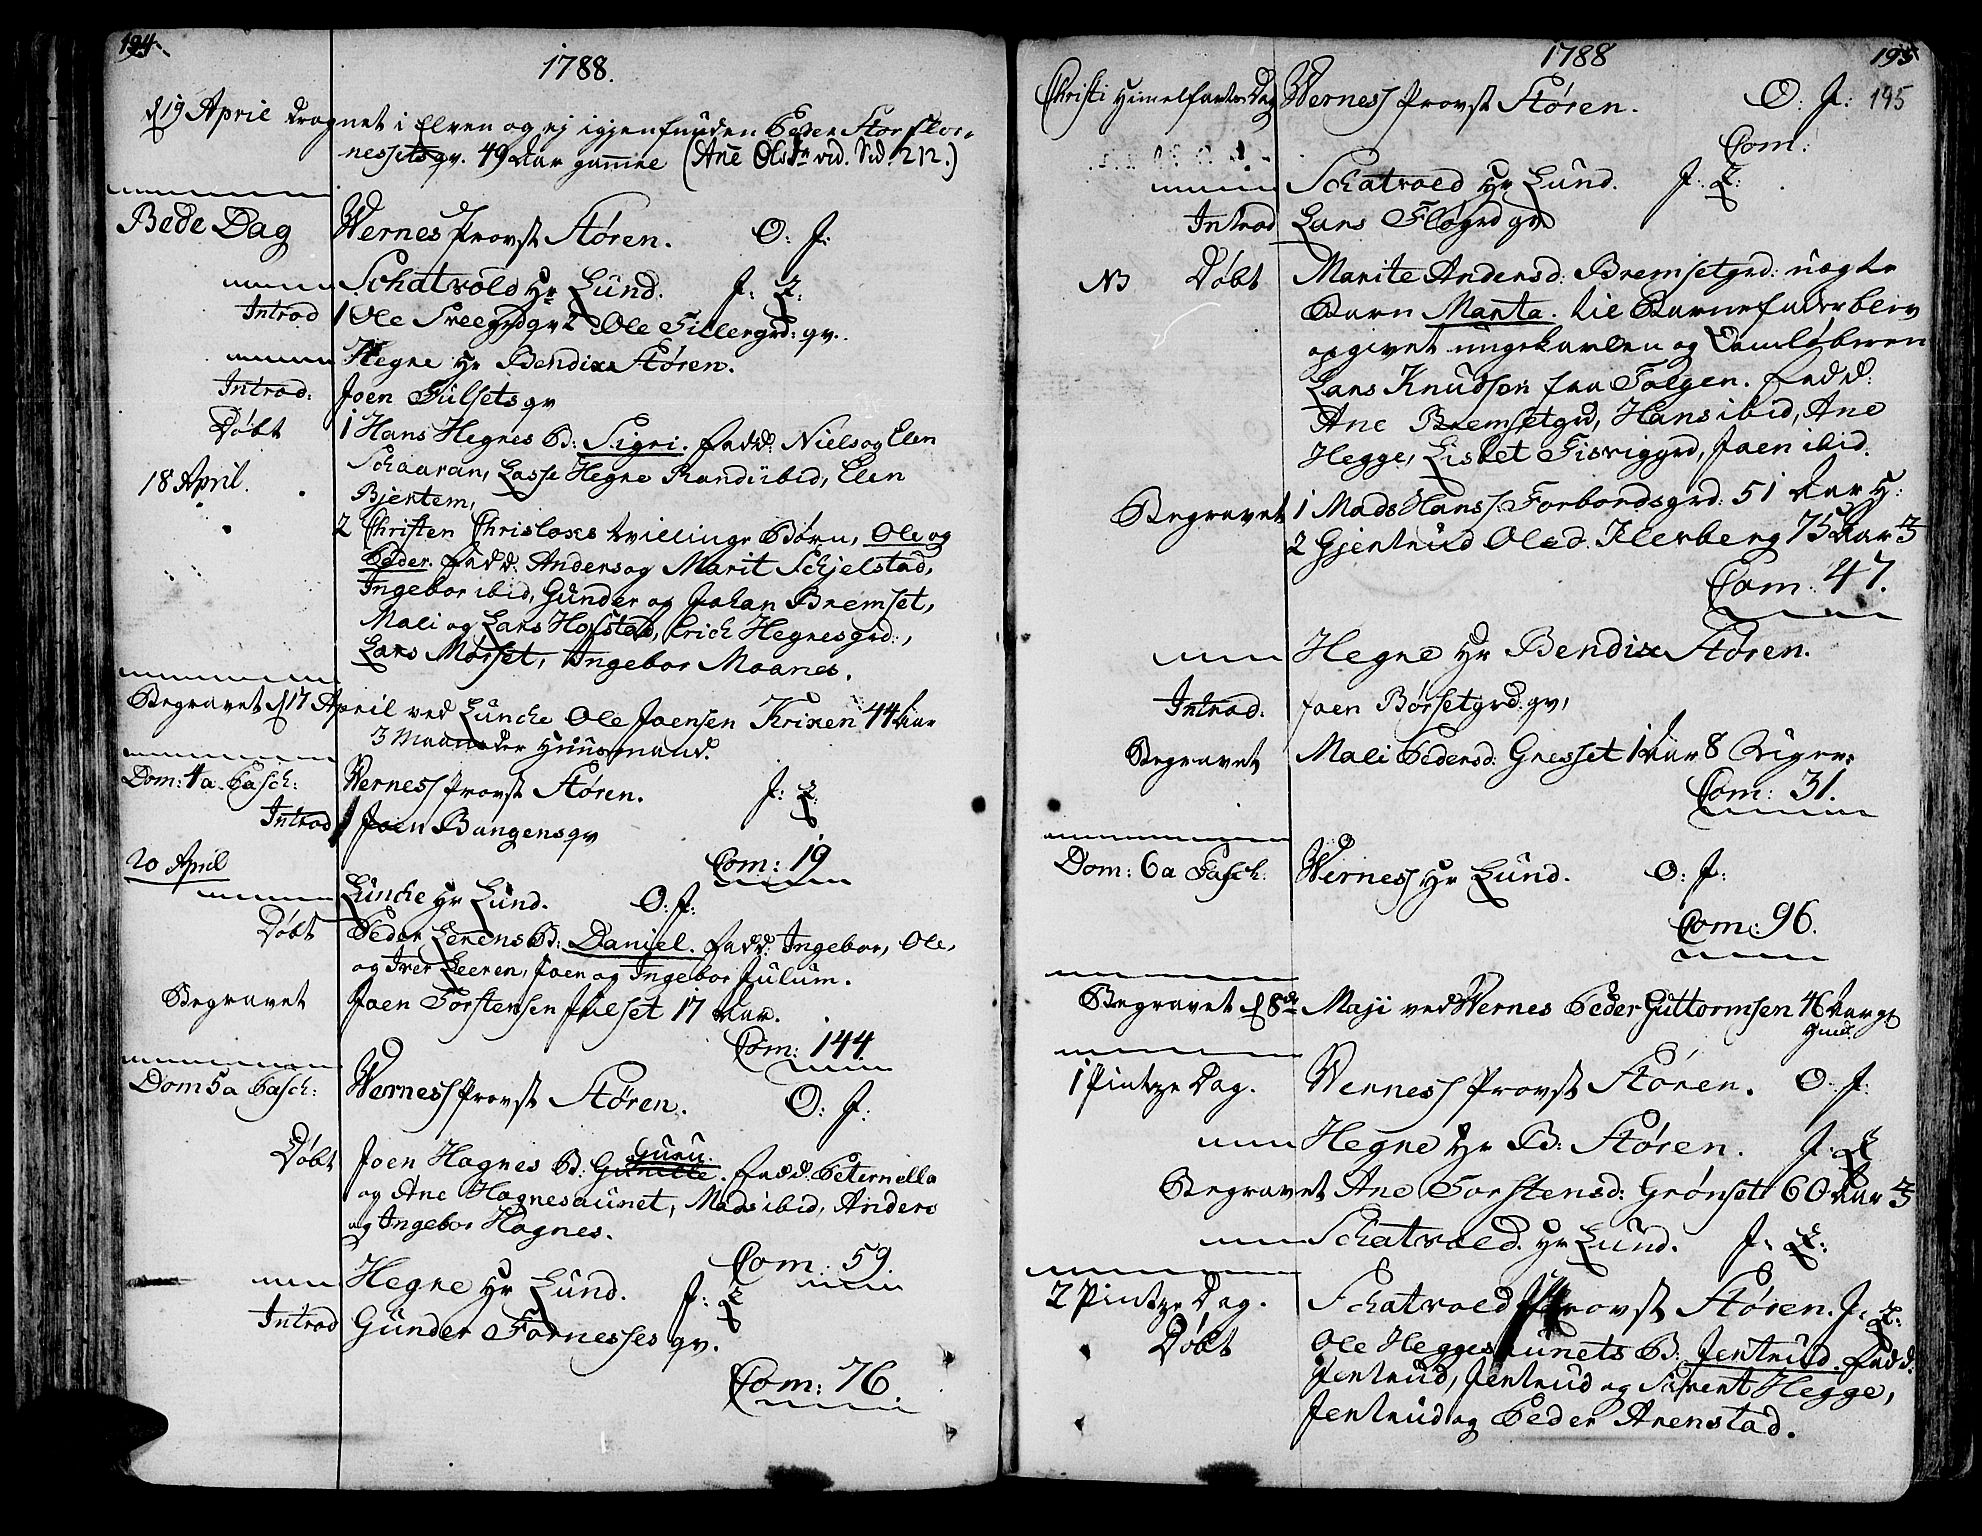 194.
1788.
d 19 April drognet i Elven og ej igjenfunden Peder Storflor-
nessetsgv. 49 Aar gamme (Ane Olsdr vid. Sid. 212.)
Bede Dag Wernes Provst Støren. O: f:
Schatvold Hr Lund. f: L:
Introd 1 Ole Sveegrdgv 2 Ole Fillergrd: gv.
Hegne Hr Bendix Støren.
Introd: Joen Fulsetsgv
Døbt 1 Hans Hegnes B: Sigri. Fadd: Niels og Elen
18 April. Schaaran, Lasse Hegne Randi ibid, Elen
Bjertem,
2 Christen Chrisloxs tvillinge Børn, Ole og
Peder. Fadd: Anders og Marit Schjelstad,
Ingebor ibid, Gunder og Johan Bremset,
Mali og Lars Hofstad, Erich Hegnesgrd:,
Lars Morset, Ingebor Moanes.
Begravet d 17 April ved Lunche Ole Joensen Krixen 44 Aar
3 Maaneder Huusmand.
Dom: 4 a Pasch: Werness Provst Støren. f: L:
Introd 1 Joen Bangensgv
Com: 19
20 April
Lunche Hr Lund. O: f:
Døbt Peder Lerens B: Daniel. Fadd: Ingebor, Ole,
og Iver Leeren, Joen og Ingebor Julum.
Begravet Joen Torstensen Julset 17 Aar.
Com: 144
Dom 5 a Pasch: Werness Provst Støren. O: f:
Guru.
Døbt Joen Hognes B: Gunille. Fadd: Peternella
og Ane Hognesaunet, Mads ibid, Anders
og Ingebor Hognes.
Com: 59.
Hegne Hr Lund. f: L
Introd Gunder Fornesses gv.
Com: 76.
1788
195
195
Christi Himelfarts Dag Werness Provst Støren. O: f:
Com:
Schatvold Hr Lund. f: L:
Introd Lars Fløgrd gv
NB Døbt Marite Andersd: Bremsetgrd: uægte
Barn Marta. til Barnefader blev
opgivet ungekarlen og Landløberen
Lars Knudsen fra Tolgen. Fadd:
Ane Bremsetgrd, Hans ibid, Ane
Hegge, Lisbet Fisviggrd, Joen ibid.
Begravet 1 Mads Hanss. Forbordsgrd: 51 Aar H:
2 Gjertrud Olsd. Ilerberg 75 Aar
Com: 47.
Hegne Hr Bendix Støren.
Introd. Joen Børsetgrd: gv,
Begravet Mali Pedersd: Gresset 1 Aar 8 Uger.
Com: 31.
Dom: 6 a Pasch: Werness Hr Lund. O: f:
Com: 96.
Begravet d 8de Maji ved Wernes Peder Guttormsen 46 Aar
1 Pintze Dag. Werness Provst Støren. O: f:
Hegne Hr B: Støren. f: L
Begravet Ane Torstensd: Grønset 60 Aar
Schatvold. Hr Lund. f: L:
2 Pintze Dag. Schatvold Provst Støren. f: L:
Døbt Ole Heggesaunets B: Jertrud. Fadd:
Jertrud, Jertrud og Sivert Hegge,
Jertrud og Peder Arenstad.